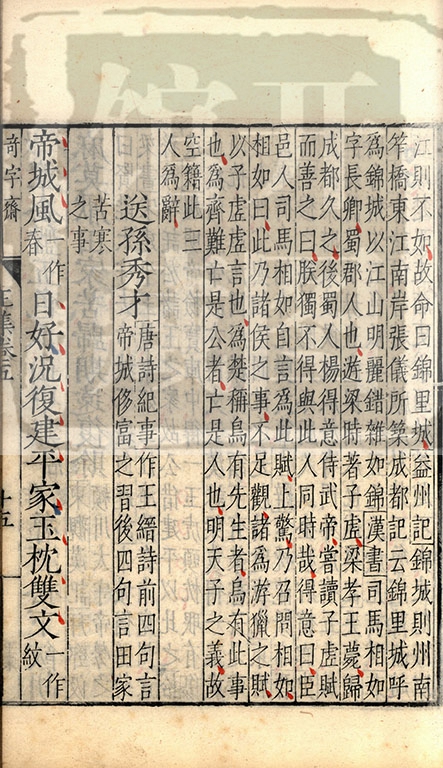 江則不如故命曰錦里城益州記錦城則州南
筰橋東江南岸張儀所築成都記云錦里城呼
爲錦城以江山明麗錯雜如錦漢書司馬相如
字長卿蜀郡人也游梁時著子虛梁孝王薨歸
成都久之後蜀人楊得意侍武帝嘗讀子虛賦
而善之曰朕獨不得與此人同時哉得意曰臣
邑人司馬相如自言爲此賦上驚乃召問相如
相如曰此乃諸侯之事不足觀諸爲游獵之賦
以子虛虛言也爲楚稱烏有先生者烏有此事
也爲齊難亡是公者亡是人也明天子之義故
空籍此三
人爲辭
送孫秀才 唐詩紀事作王縉詩前四句言
帝城侈富之習後四句言田家
苦寒
之事
帝城風一作春日好況復建平家玉枕雙文一作紋
奇字齋
王集卷五
十五